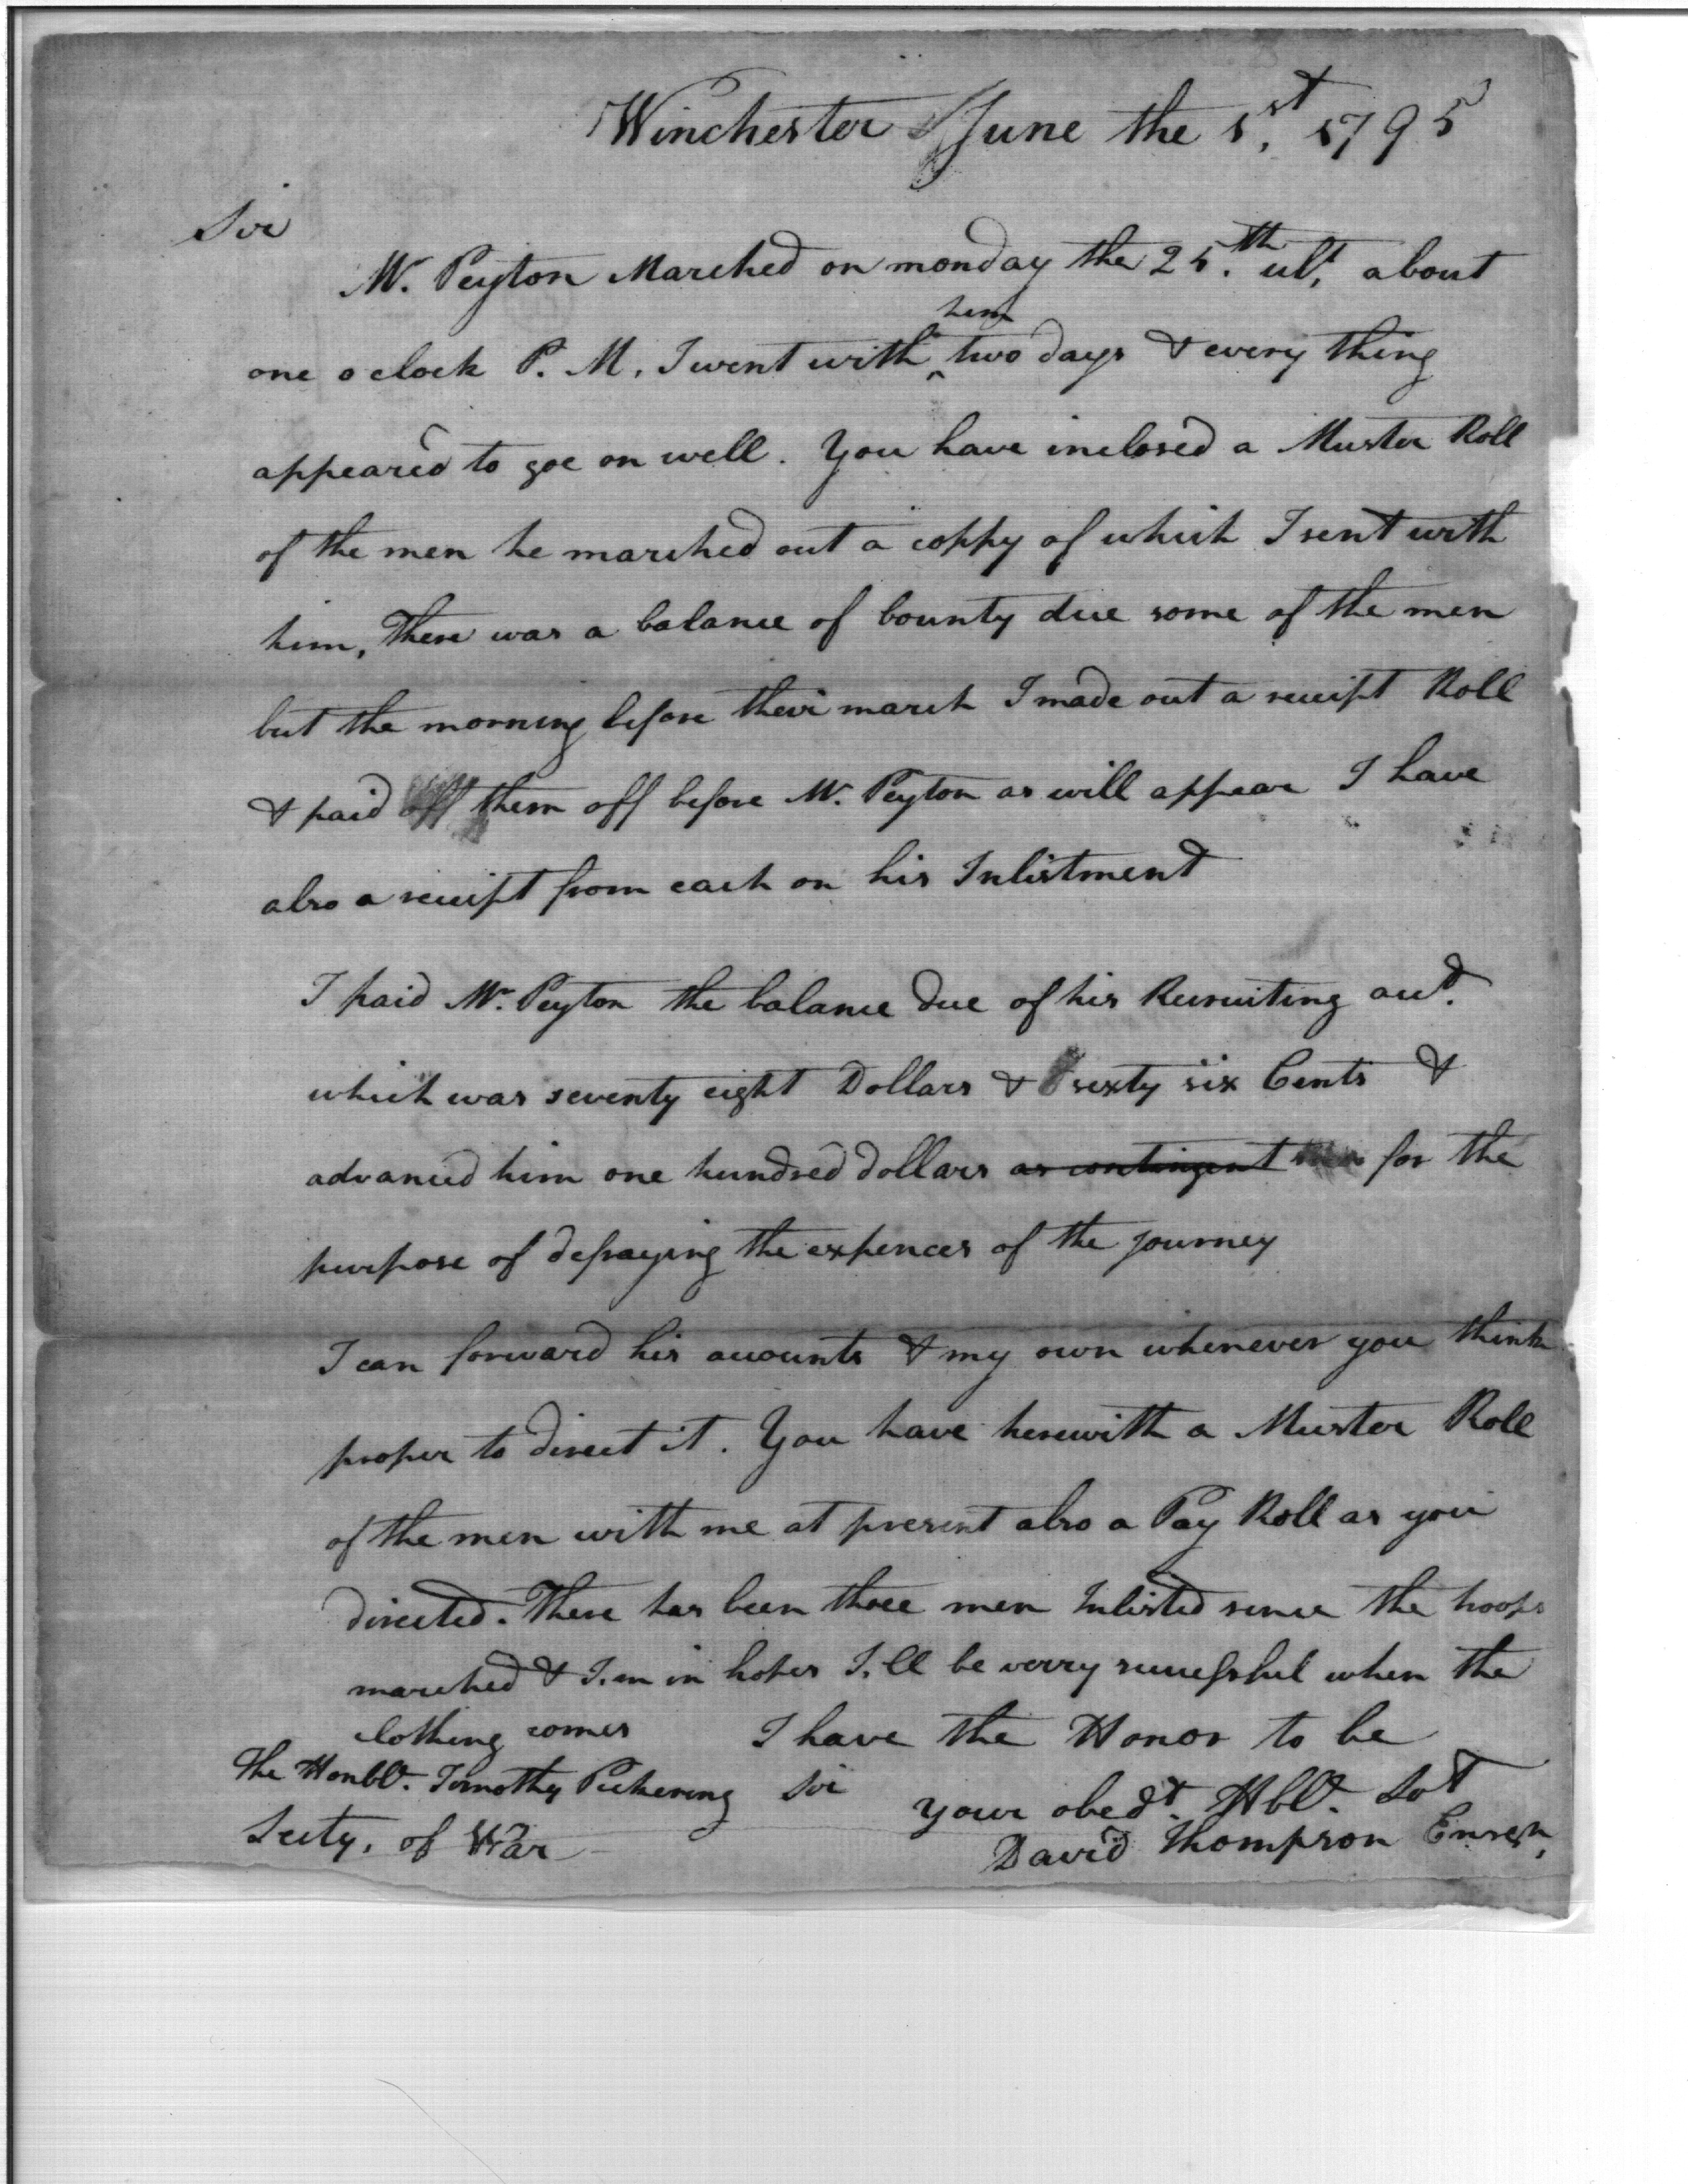 Winchester June the 1st, 1795
Sir
Mr. Peyton Marched on monday the 25.th ult, about
him
one o clock P. M, I went with ^ two days & every thing
appeared to goe on well. You have inclosed a Muster Roll
of the men he marched out a coppy of which I sent with
him, There was a balance of bounty due some of the men
but the morning before their march I made out a receipt Roll
& paid off them off before Mr. Peyton as will appear I have
also a receipt from each on his Inlistment
I paid Mr. Peyton the balance due of his Recruiting acct.
which was seventy eight Dollars & sixty six Cents &
advanced him one hundred dollars as contingent for the
purpose of defraying the expences of the journey
I can forward his accounts & my own whenever you think
proper to direct it. You have herewith a Muster Roll
of the men with me at present also a Pay Roll as you
directed. There has been three men Inlisted since the troops
marched & I.m in hopes I.ll be verry successful when the
clothing comes I have the Honor to be
The Honble. Timothy Pickering Sir
your obedt. Hble. Sot
Secty, of War
David Thompson Ensign,